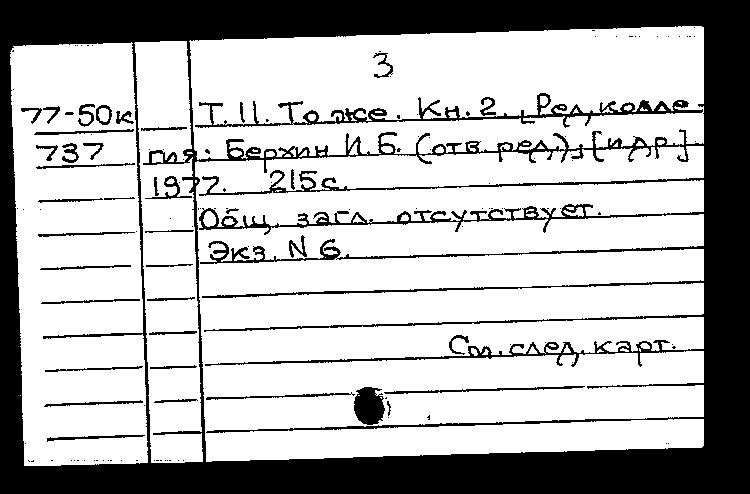 3
77-50к Т. 11. То же. Кн. 2. [Ред. колле-
737 гия: Берхин И.Б. (отв. ред.)] [и др]
1977. 215 с.
Общ. загл. отсутствует.
Экз. N 6.
См. след. карт.